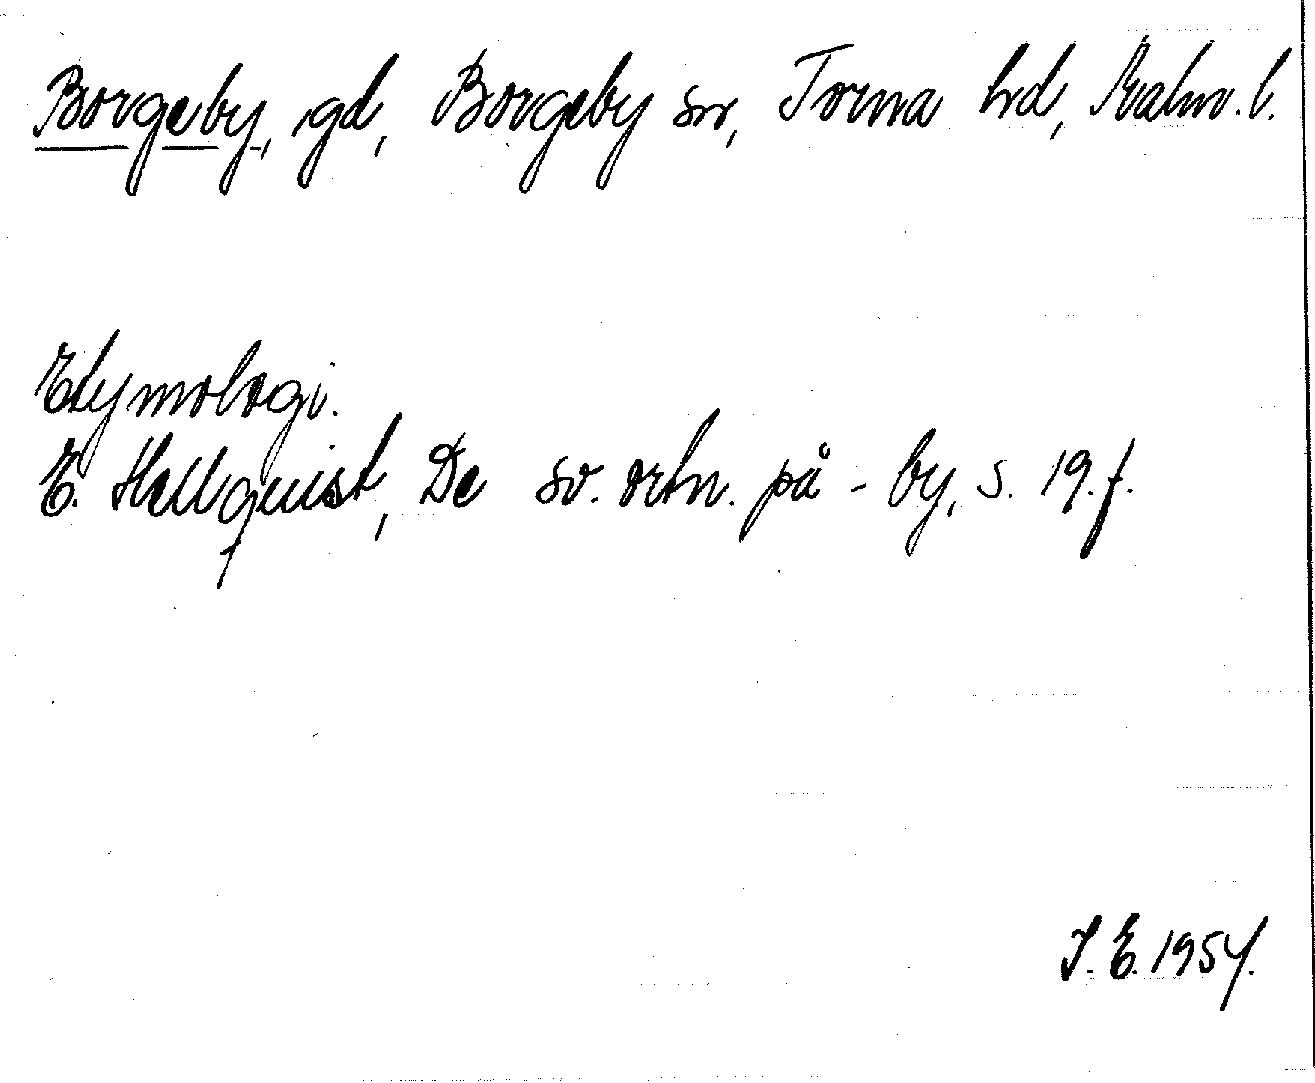 Borgeby, gd, Borgeby sn, Torna hd, Malm. l.
Etymologi.
E. Hellquist, De sv. ortn. på - by, s. 19. f.
I. E. 1954.